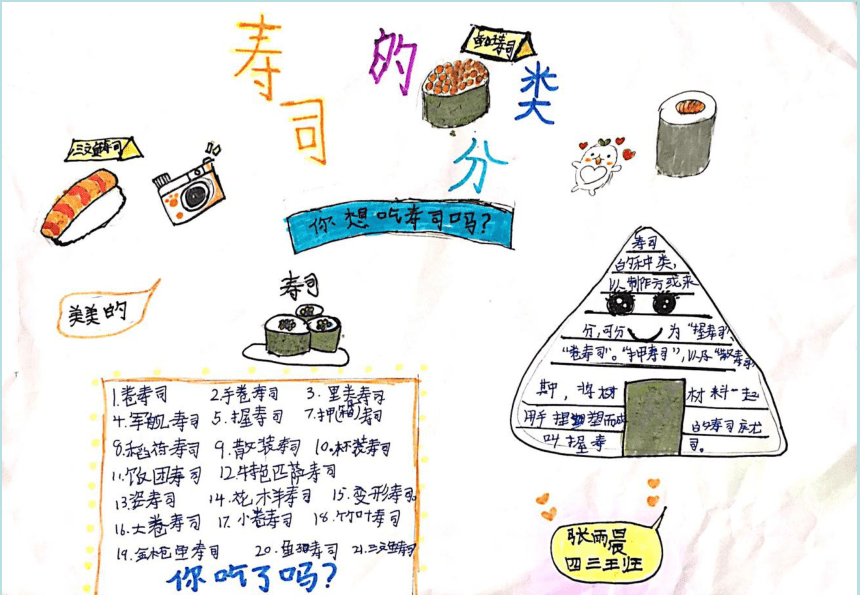 寿司的类分
鱼籽寿司
三文鱼寿司
你想吃寿司吗?
美美的
寿司
1.卷寿司 2.手卷寿司 3.里卷寿司
4.军舰寿司 5.握寿司 7.押(箱)寿司
8.稻荷寿司 9.散装寿司 10.杯装寿司
11.饭团寿司 12.牛包匹萨寿司
13.姿寿司 14.花木羊寿司 15.变形寿司。
16.大卷寿司 17.小卷寿司 18.竹叶寿司
19. 20.鱼籽寿司 21.三文鱼寿司
你吃了吗?
寿司
的种类,
以制作方或来
分,可分为“握寿司”、
“卷寿司”。“押寿司”,以及“散寿司
其中,将材材料一起
用手捏塑而成的寿司就
叫握寿司。
张雨晨
四三王班